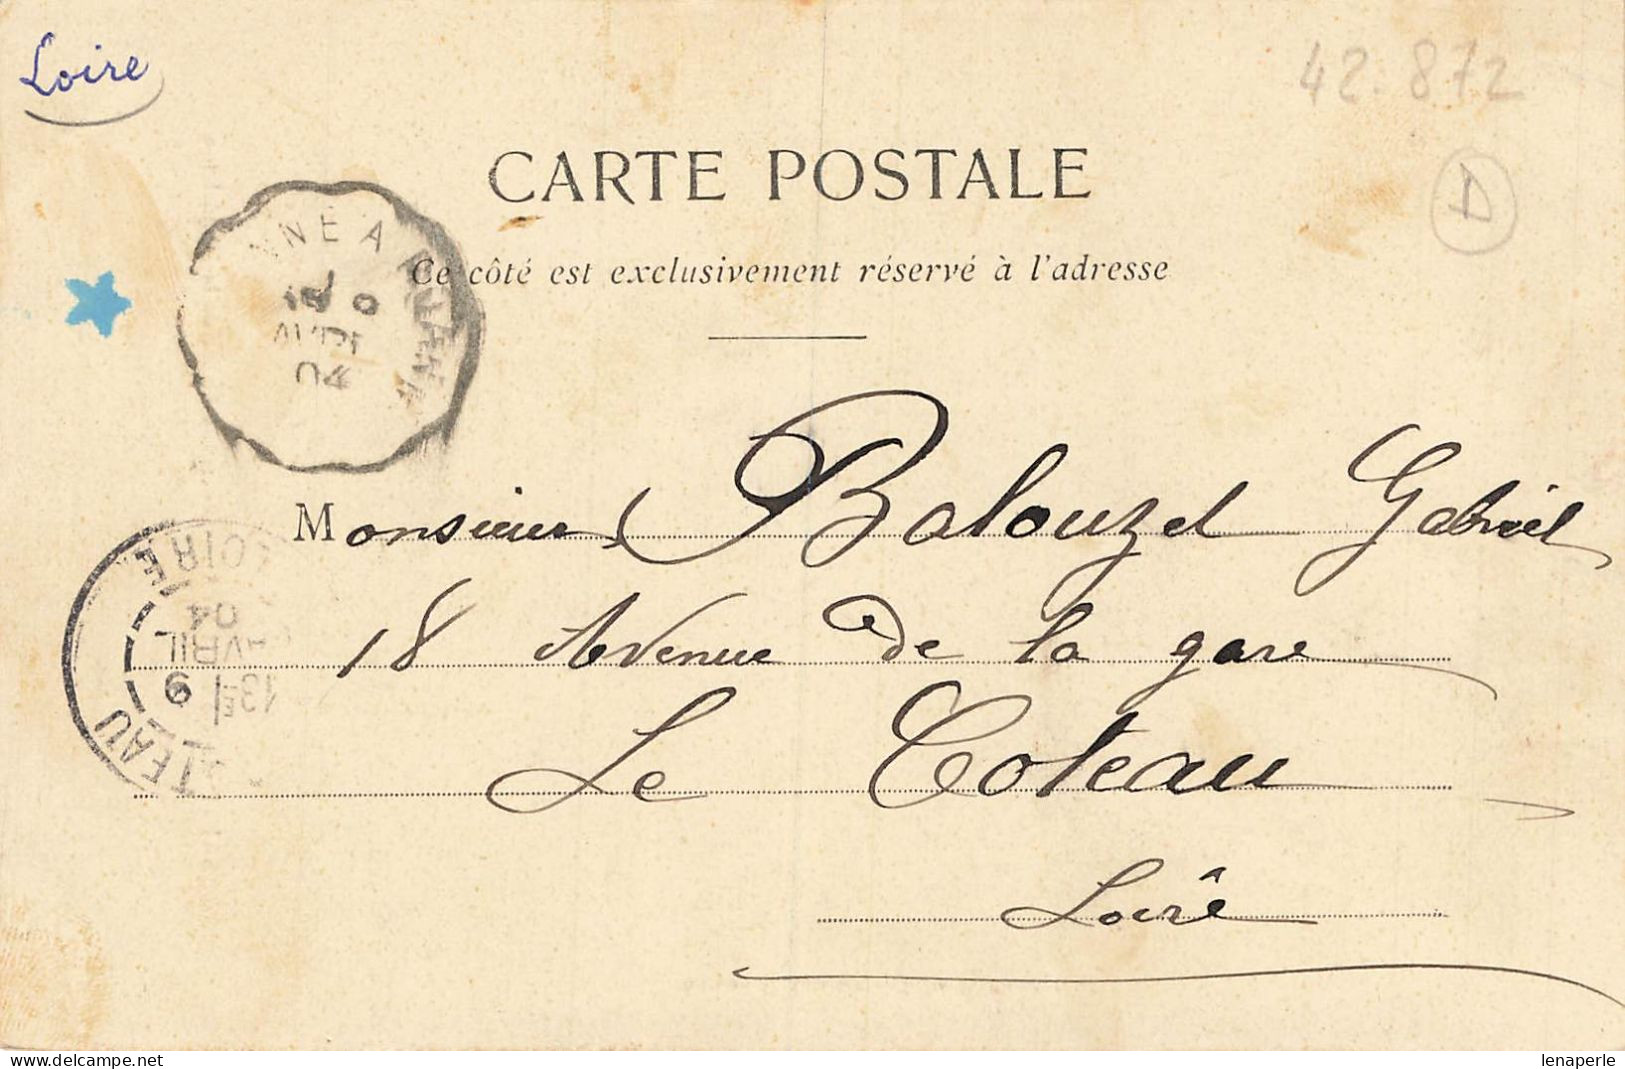 Loire
42.872
D
CARTE POSTALE
Ce côté est exclusivement réservé à l'adresse
NNE A
AVRIL
04
Monsieur Balouzet Gabriel
18 Avenue de la gare
Le Coteau
Loire
LOIRE
04
AVRIL
13E 9
TEAU
www.delcampe.net
lenaperle